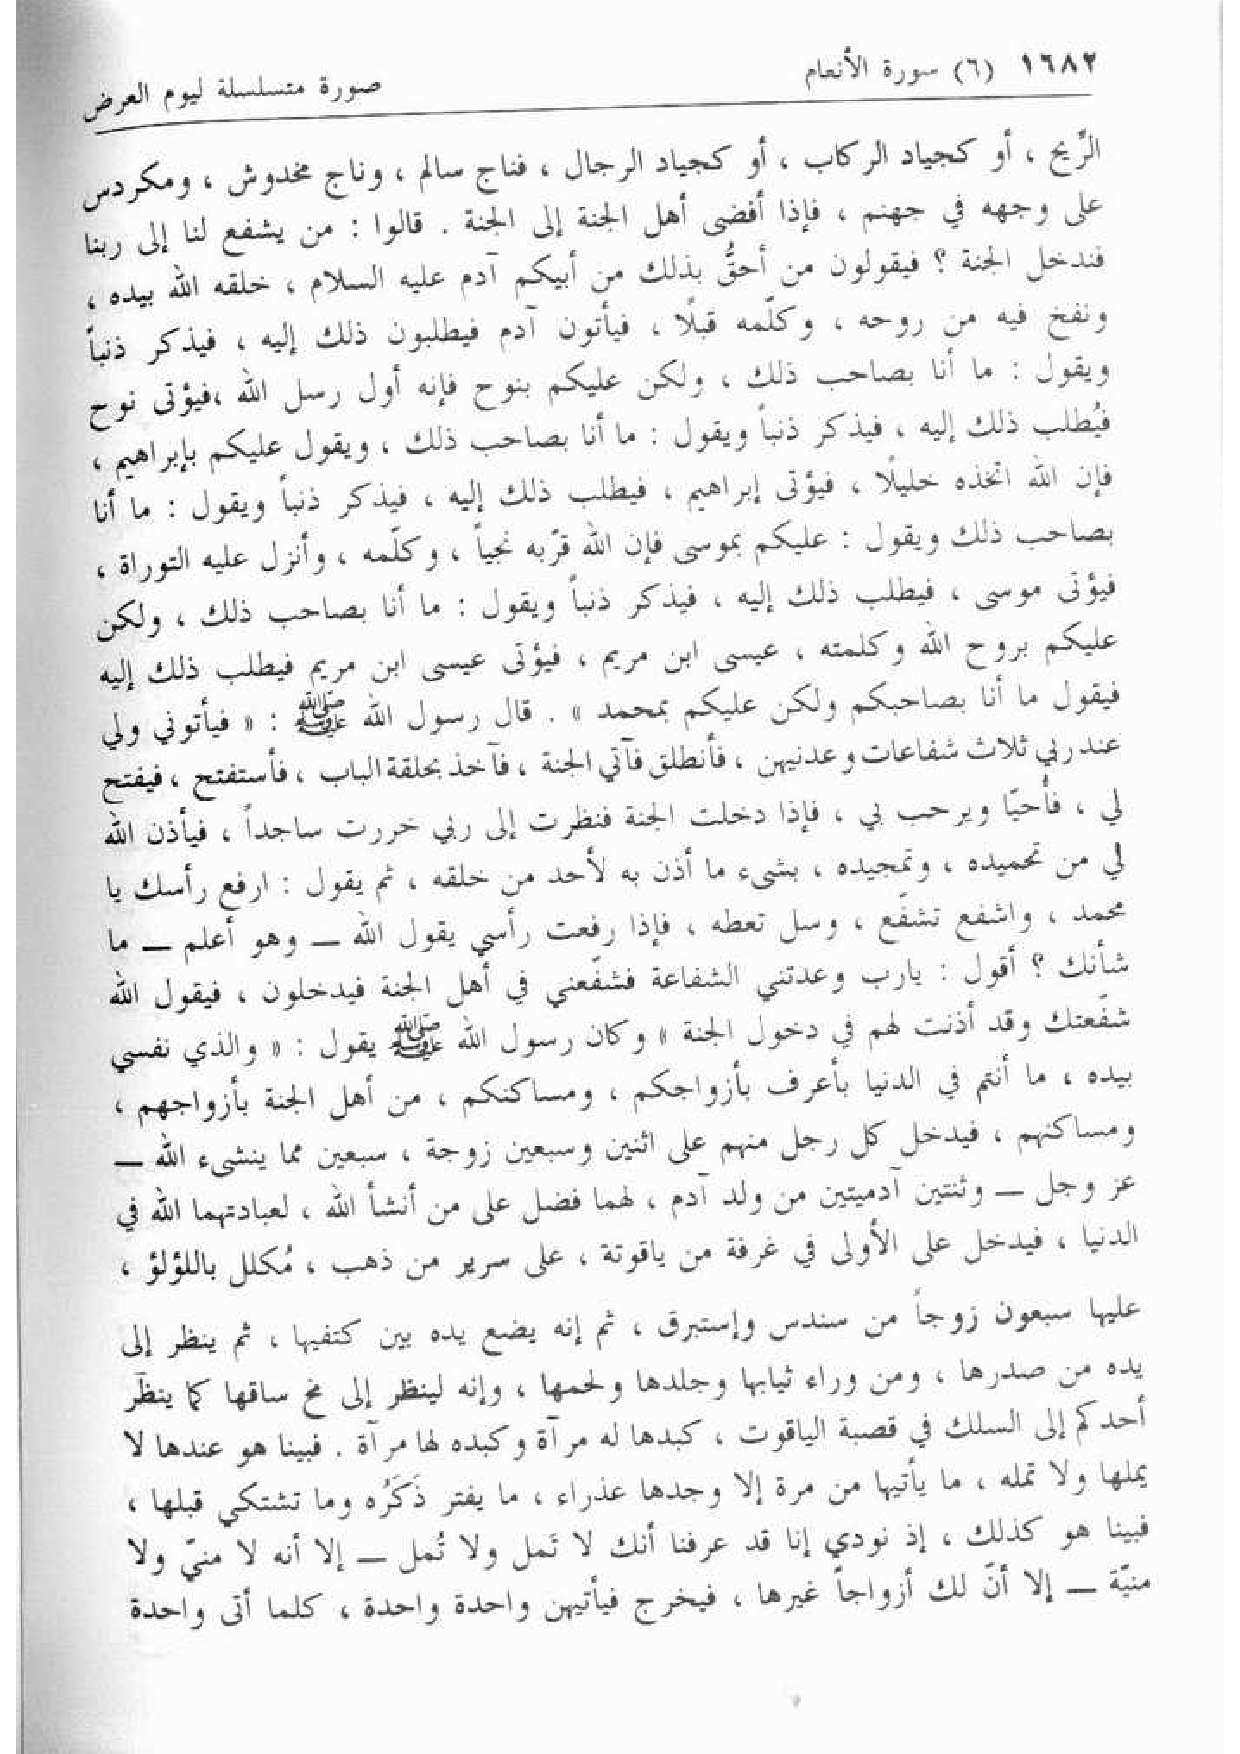 ١٦٨٢ (٦) سورة الأنعام صورة متسلسلة ليوم العرض
الرِّيح ، أو كجياد الركاب ، أو كجياد الرجال ، فناج سالم ، وناج مخدوش ، ومكردس
على وجهه في جهنم ، فإذا أفضى أهل الجنة إلى الجنة . قالوا : من يشفع لنا إلى ربنا
فندخل الجنة ؟ فيقولون من أحقُّ بذلك من أبيكم آدم عليه السلام ، خلقه الله بيده ،
ونفخ فيه من روحه ، وكلّمه قبلًا ، فيأتون آدم فيطلبون ذلك إليه ، فيذكر ذنباً
ويقول : ما أنا بصاحب ذلك ، ولكن عليكم بنوح فإنه أول رسل الله ،فيؤتى نوح
فيُطلب ذلك إليه ، فيذكر ذنباً ويقول : ما أنا بصاحب ذلك ، ويقول عليكم بإبراهيم ،
فإن الله اتخذه خليلًا ، فيؤتى إبراهيم ، فيطلب ذلك إليه ، فيذكر ذنباً ويقول : ما أنا
بصاحب ذلك ويقول : عليكم بموسى فإن الله قرّبه نجياً ، وكلّمه ، وأنزل عليه التوراة ،
فيؤتى موسى ، فيطلب ذلك إليه ، فيذكر ذنباً ويقول : ما أنا بصاحب ذلك ، ولكن
عليكم بروح الله وكلمته ، عيسى ابن مريم ، فيؤتى عيسى ابن مريم فيطلب ذلك إليه
فيقول ما أنا بصاحبكم ولكن عليكم بمحمد » . قال رسول الله ﷺ : « فيأتوني ولي
عند ربي ثلاث شفاعات وعدنيهن ، فأنطلق فآتي الجنة ، فآخذ بحلقة الباب ، فأستفتح ، فيفتح
لي ، فأُحيّا ويرحب بي ، فإذا دخلت الجنة فنظرت إلى ربي خررت ساجداً ، فيأذن الله
لي من تحميده ، وتمجيده ، بشيء ما أذن به لأحد من خلقه ، ثم يقول : ارفع رأسك يا
محمد ، واشفع تشفّع ، وسل تعطه ، فإذا رفعت رأسي يقول الله ــ وهو أعلم ــ ما
شأنك ؟ أقول : يارب وعدتني الشفاعة فشفّعني في أهل الجنة فيدخلون ، فيقول الله
شفّعتك وقد أذنت لهم في دخول الجنة » وكان رسول الله ﷺ يقول : « والذي نفسي
بيده ، ما أنتم في الدنيا بأعرف بأزواجكم ، ومساكنكم ، من أهل الجنة بأزواجهم ،
ومساكنهم ، فيدخل كل رجل منهم على اثنين وسبعين زوجة ، سبعين مما ينشيء الله ــ
عز وجل ــ وثنتين آدميتين من ولد آدم ، لهما فضل على من أنشأ الله ، لعبادتهما الله في
الدنيا ، فيدخل على الأولى في غرفة من ياقوتة ، على سرير من ذهب ، مُكلل باللؤلؤ ،
عليها سبعون زوجاً من سندس وإستبرق ، ثم إنه يضع يده بين كتفيها ، ثم ينظر إلى
يده من صدرها ، ومن وراء ثيابها وجلدها ولحمها ، وإنه لينظر إلى مخ ساقها كما ينظر
أحدكم إلى السلك في قصبة الياقوت ، كبدها له مرآة وكبده لها مرآة . فبينا هو عندها لا
يملها ولا تمله ، ما يأتيها من مرة إلا وجدها عذراء ، ما يفتر ذَكَرُه وما تشتكي قبلها ،
فبينا هو كذلك ، إذ نودي إنا قد عرفنا أنك لا تَمل ولا تُمل ــ إلا أنه لا منيّ ولا
منيّة ــ إلا أنّ لك أزواجاً غيرها ، فيخرج فيأتيهن واحدة واحدة ، كلما أتى واحدة